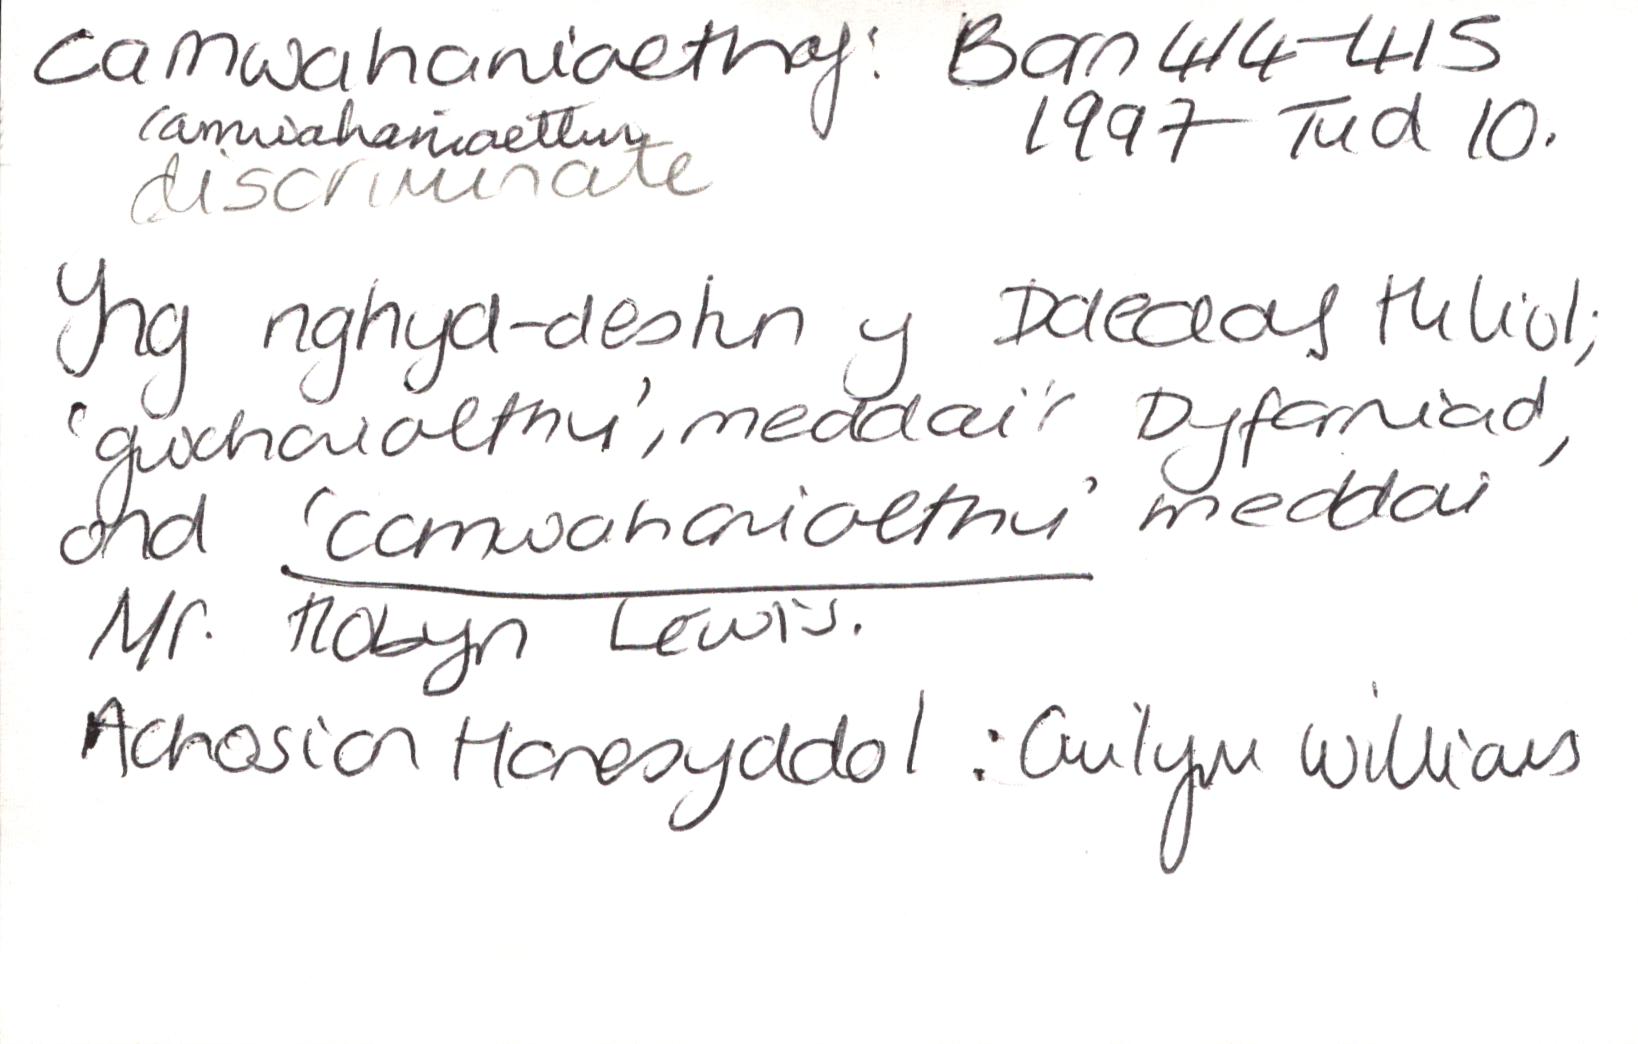 camwahaniaethaf: Barn 414-415
camwahaniaethu 1997 Tud 10.
discriminate
Yng nghyd-destun y Ddeddf Hiliol;
'gwahaniaethu', meddai'r Dyfarniad,
ond 'camwahaniaethu' meddai
Mr. Robyn Lewis.
Achosion Hanesyddol : Gwilym Williams